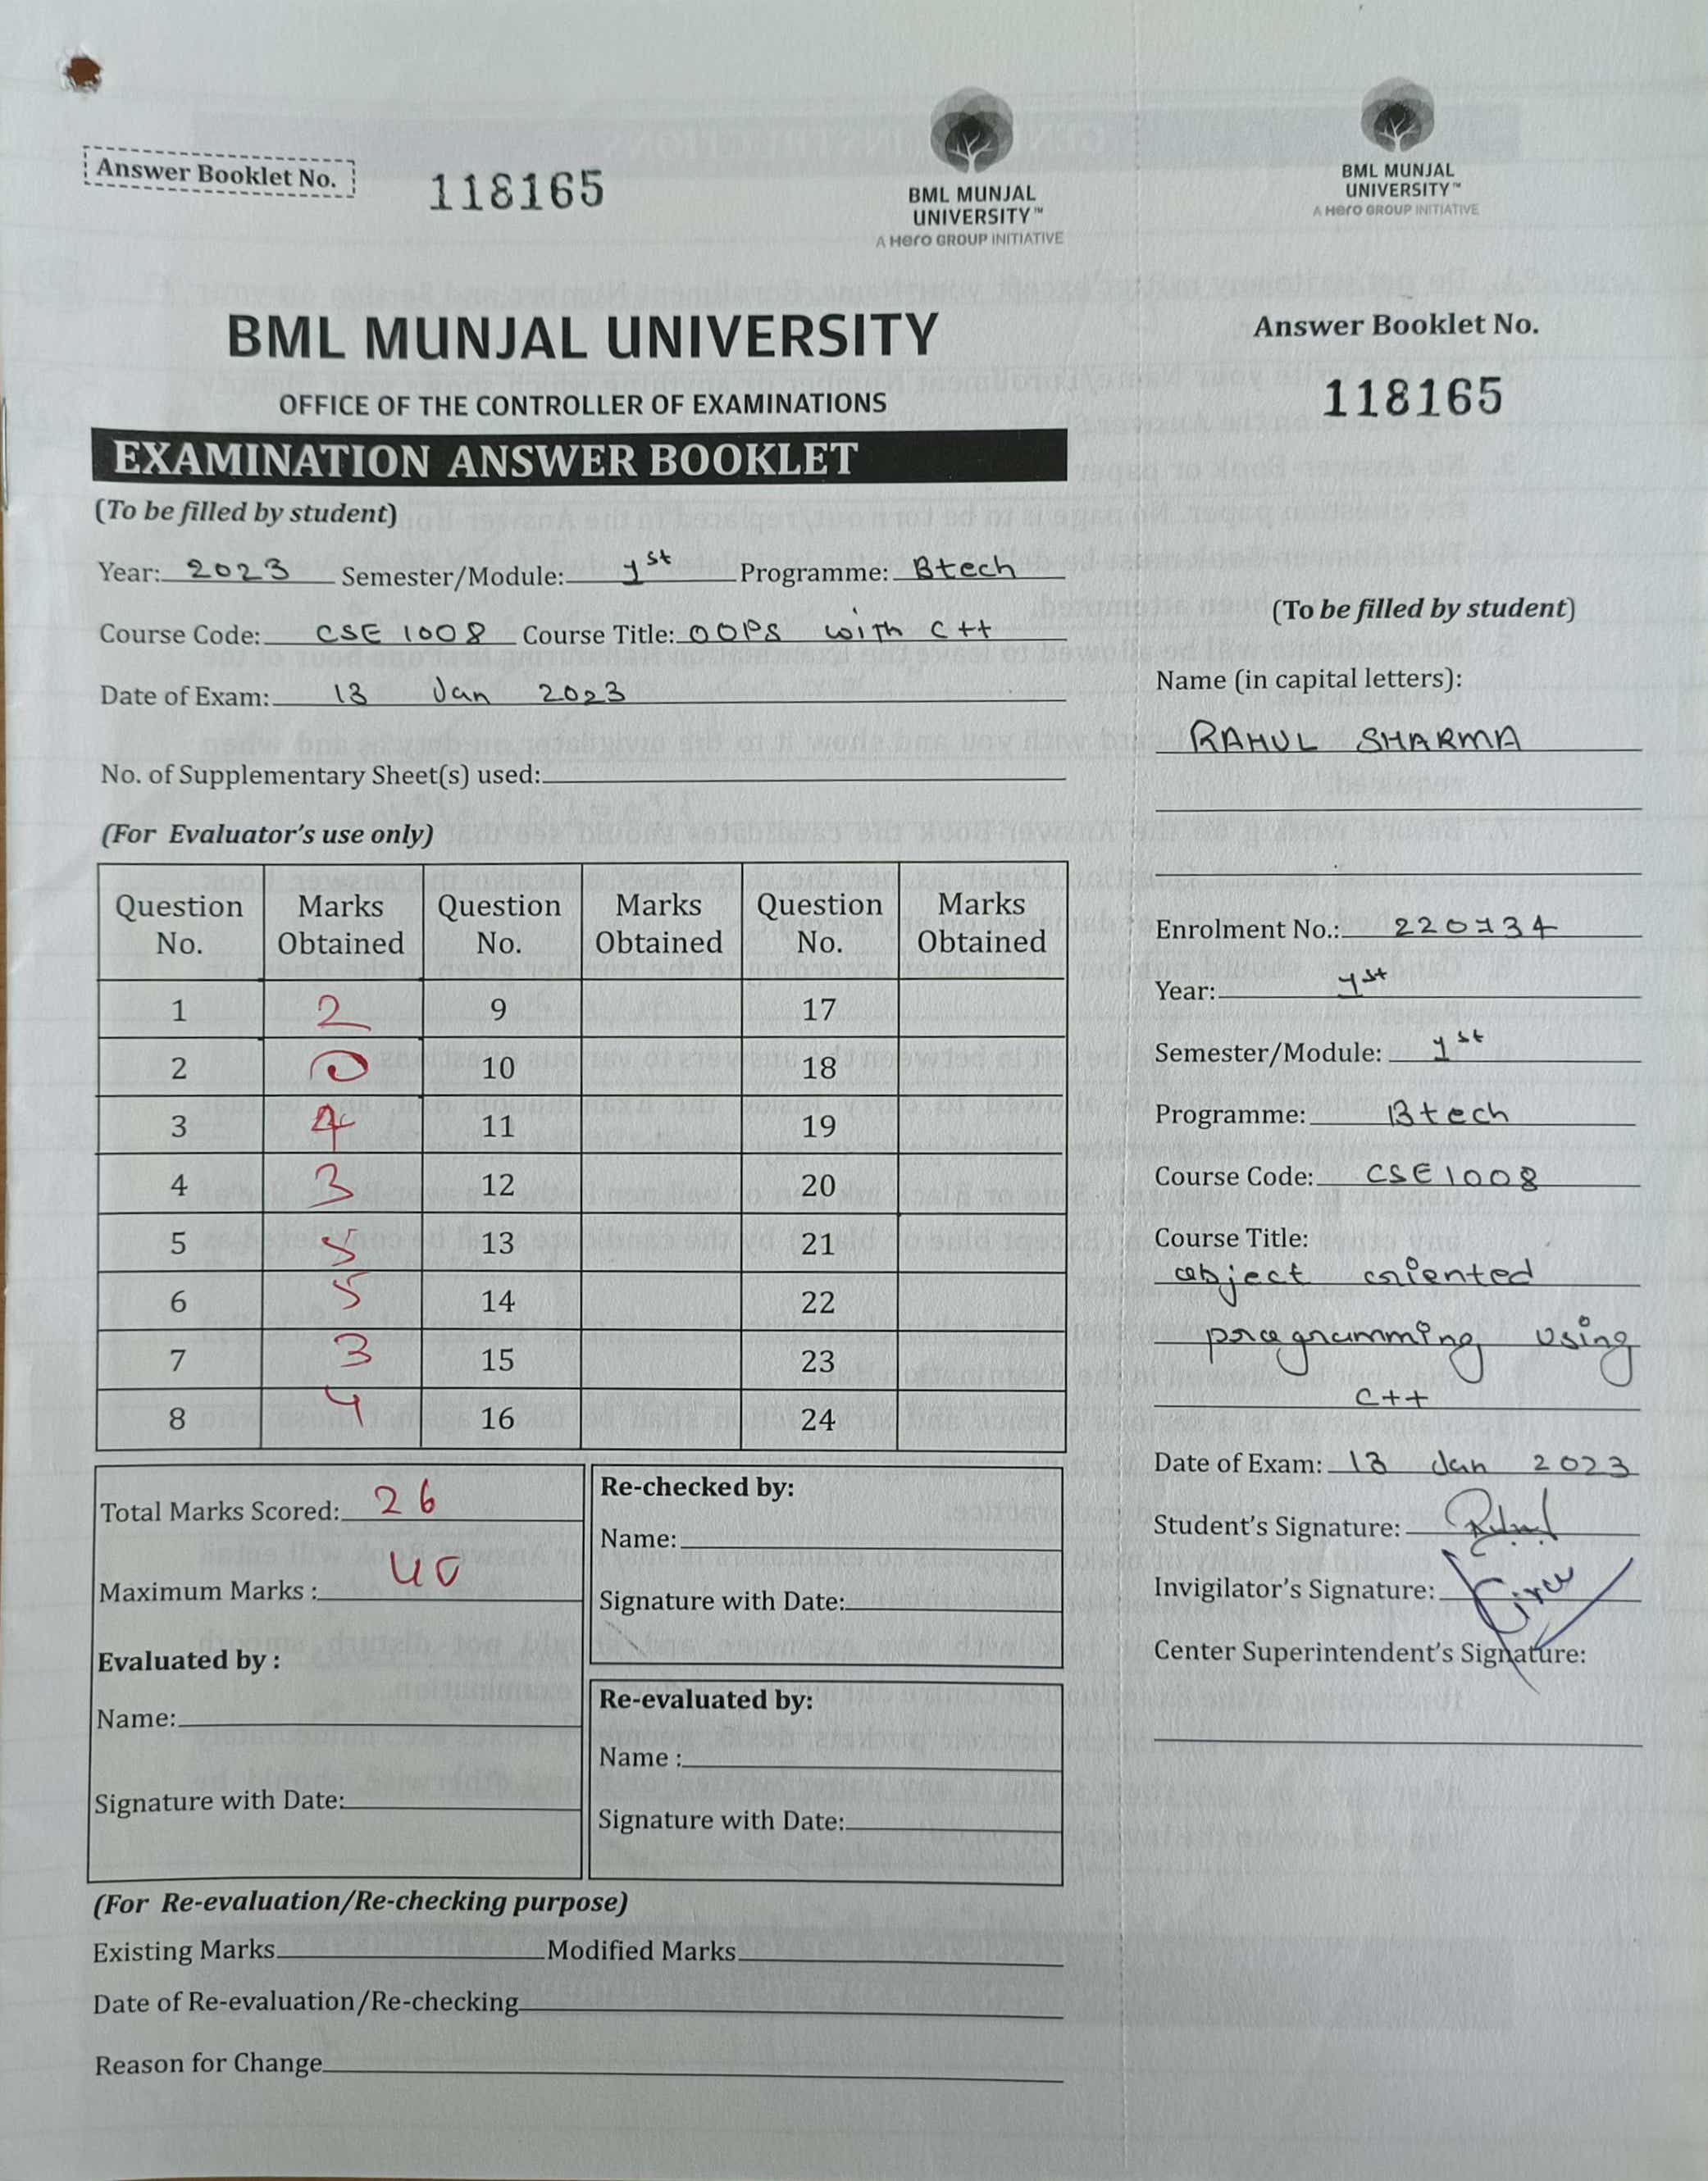 Answer Booklet No. 118165
BML MUNJAL
UNIVERSITY™
A Hero GROUP INITIATIVE
BML MUNJAL UNIVERSITY
OFFICE OF THE CONTROLLER OF EXAMINATIONS
EXAMINATION ANSWER BOOKLET
(To be filled by student)
Year: 2023 Semester/Module: 1st Programme: Btech
Course Code: CSE 1008 Course Title: OOPS with C++
Date of Exam: 13 Jan 2023
No. of Supplementary Sheet(s) used:
(For Evaluator's use only)
Question No. Marks Obtained Question No. Marks Obtained Question No. Marks Obtained
1 2 9 17
2 0 10 18
3 4 11 19
4 3 12 20
5 5 13 21
6 5 14 22
7 3 15 23
8 4 16 24
Total Marks Scored: 26
Maximum Marks : 40
Evaluated by :
Name:
Signature with Date:
Re-checked by:
Name:
Signature with Date:
Re-evaluated by:
Name :
Signature with Date:
(For Re-evaluation/Re-checking purpose)
Existing Marks Modified Marks
Date of Re-evaluation/Re-checking
Reason for Change
BML MUNJAL
UNIVERSITY™
A Hero GROUP INITIATIVE
Answer Booklet No.
118165
(To be filled by student)
Name (in capital letters):
RAHUL SHARMA
Enrolment No.: 220734
Year: 1st
Semester/Module: 1st
Programme: Btech
Course Code: CSE1008
Course Title:
object oriented
programming using
C++
Date of Exam: 13 Jan 2023
Student's Signature:
Invigilator's Signature:
Center Superintendent's Signature: